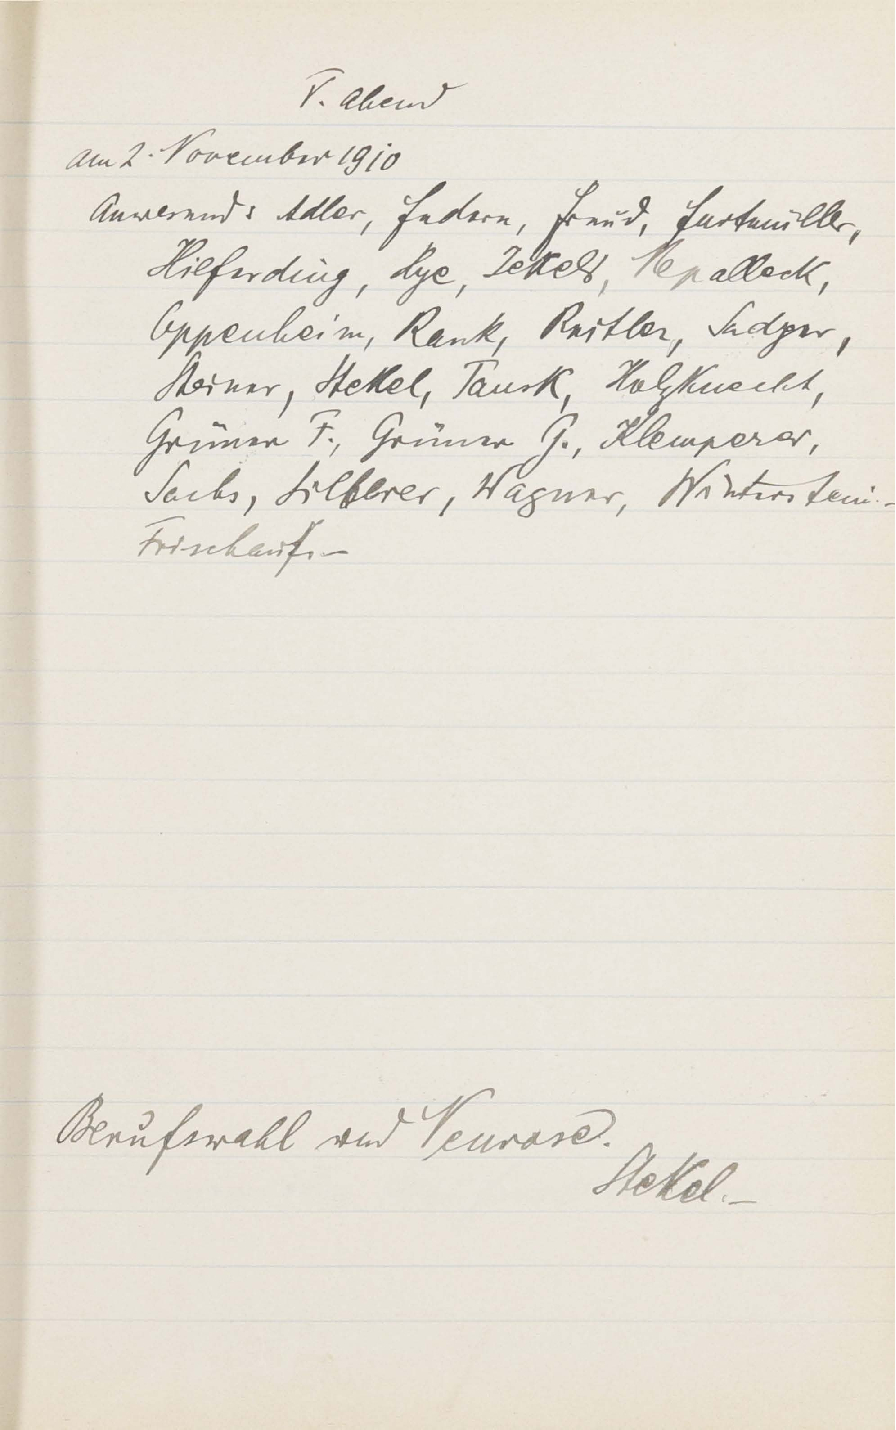 V. Abend
am 2. November 1910
Anwesend: Adler, Federn, Freud, Furtmüller,
Hilferding, Hye, Jekels, Nepalleck,
Oppenheim, Rank, Reitler, Sadger,
Steiner, Stekel, Tausk, Holzknecht,
Grüner F., Grüner G., Klemperer,
Sachs, Silberer, Wagner, Winterstein.-
Frischauf.-
Berufswahl und Neurose.
Stekel.-